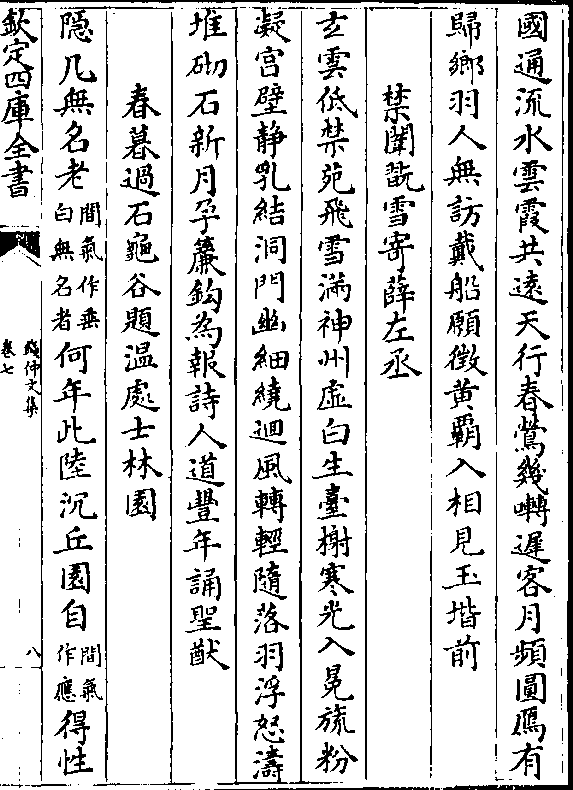 國通流水雲霞共遠天行春鶯幾囀遲客月頻圓鴈有
歸鄉羽人無訪戴船願徵黄覇入相見玉堦前
禁闈翫雪寄薛左丞
玄雲低禁苑飛雪滿神州虚白生臺榭寒光入冕旒粉
凝宫壁静乳結洞門幽細繞迴風轉輕隨落羽浮怒濤
堆砌石新月孕簾鈎為報詩人道豐年誦聖猷
春暮過石龜谷題温處士林園
隠几無名老間氣作垂白無名者何年此陸沉丘園自間氣作應得性
欽定四庫全書
錢仲文集
卷七
八